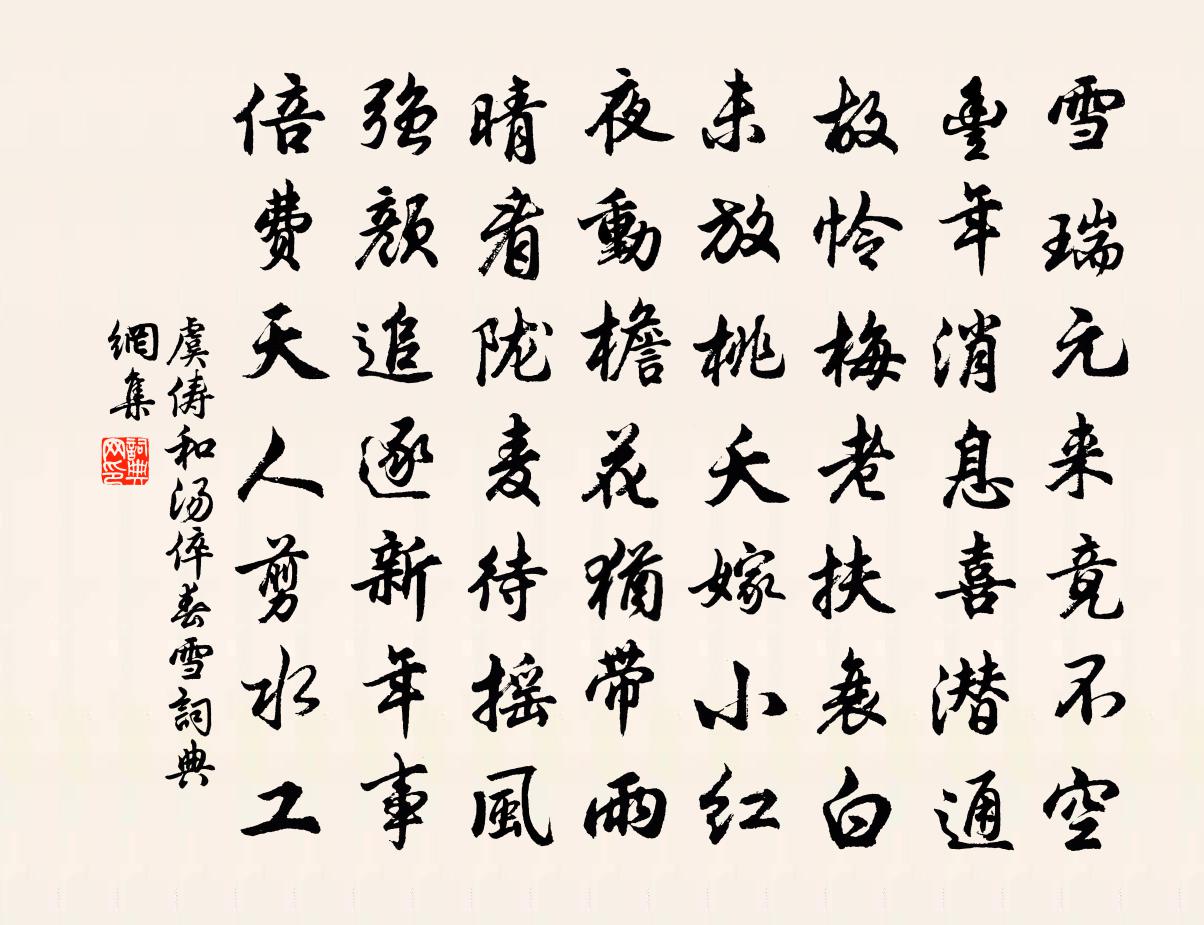 雪瑞元来竟不空
豊年消息喜潜通
故怜梅老扶衰白
未放桃夭嫁小红
夜動檐花猶带雨
晴看陇麦待摇風
强颜追逐新年事
倍费天人剪水工
虞俦和汤倅春雪詞典
網集
詞典
网印